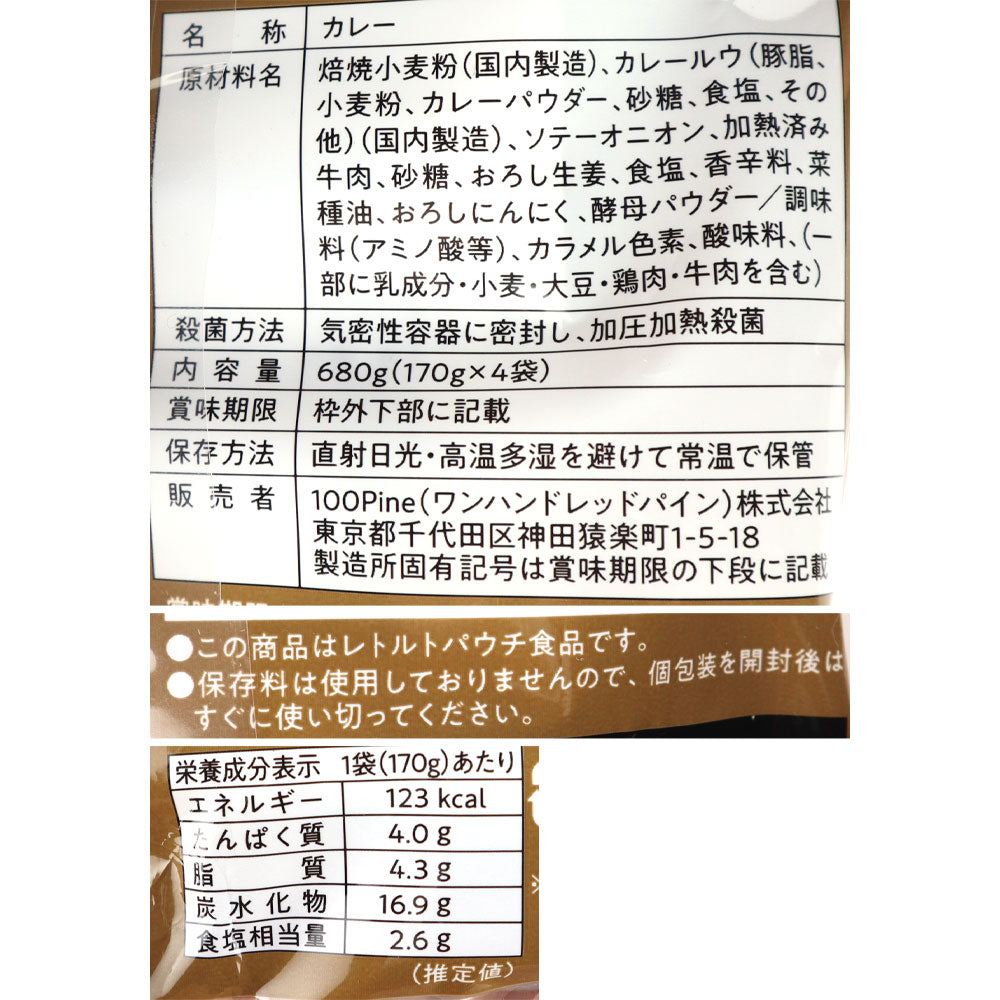 名称 カレー
原材料名 焙焼小麦粉(国内製造)、カレールウ(豚脂、
小麦粉、カレーパウダー、砂糖、食塩、その
他)(国内製造)、ソテーオニオン、加熱済み
牛肉、砂糖、おろし生姜、食塩、香辛料、菜
種油、おろしにんにく、酵母パウダー/調味
料(アミノ酸等)、カラメル色素、酸味料、(一
部に乳成分・小麦・大豆・鶏肉・牛肉を含む)
殺菌方法 気密性容器に密封し、加圧加熱殺菌
内容量 680g(170g×4袋)
賞味期限 枠外下部に記載
保存方法 直射日光・高温多湿を避けて常温で保管
販売者 100Pine(ワンハンドレッドパイン)株式会社
東京都千代田区神田猿楽町1-5-18
製造所固有記号は賞味期限の下段に記載
●この商品はレトルトパウチ食品です。
●保存料は使用しておりませんので、個包装を開封後は
すぐに使い切ってください。
栄養成分表示 1袋(170g)あたり
エネルギー 123 kcal
たんぱく質 4.0 g
脂質 4.3 g
炭水化物 16.9 g
食塩相当量 2.6 g
(推定値)